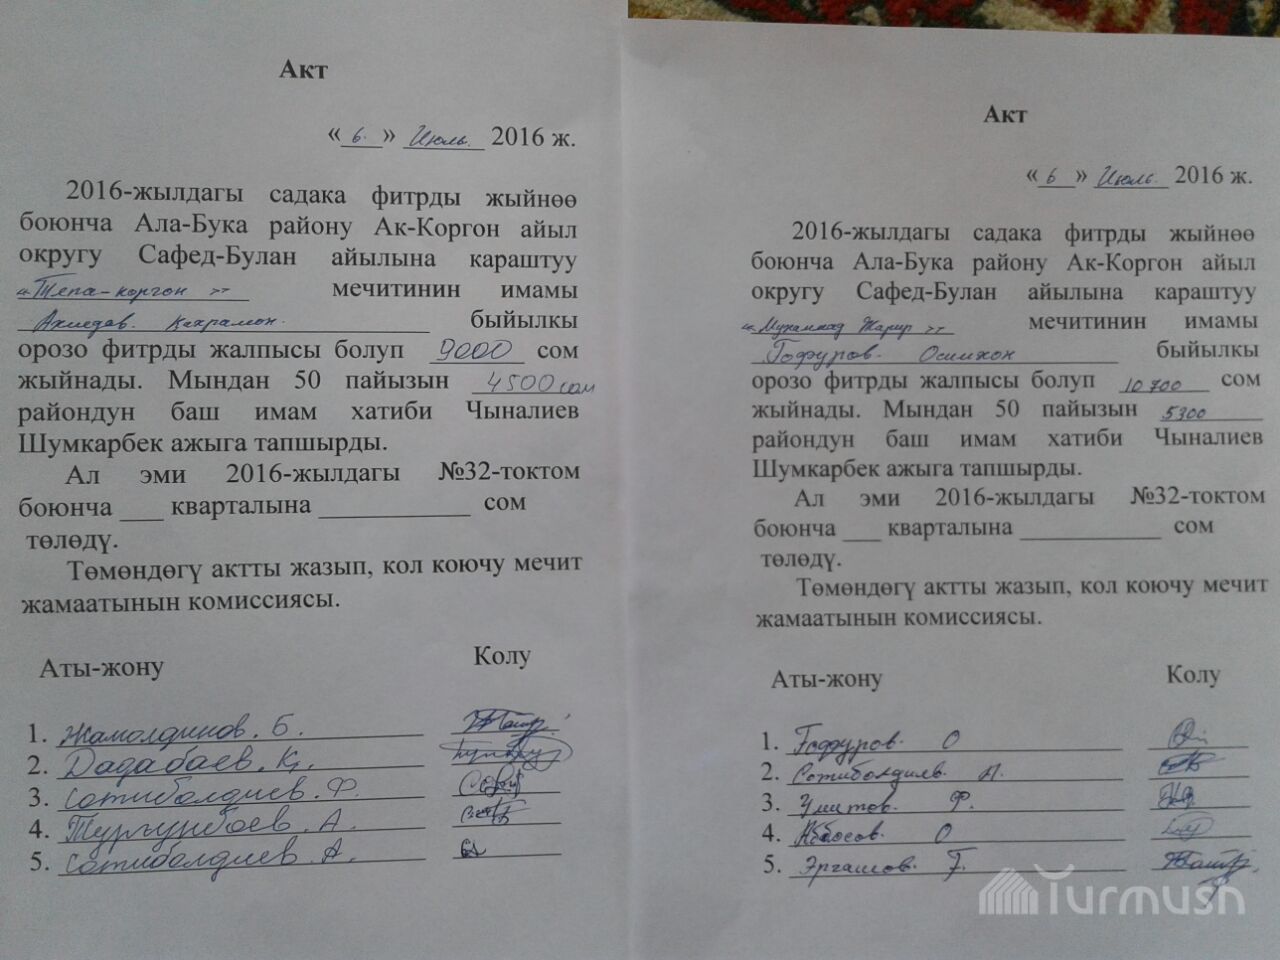 Акт
«6.» Июль. 2016 ж.
2016-жылдагы садака фитрды жыйнөө
боюнча Ала-Бука району Ак-Коргон айыл
округу Сафед-Булан айылына караштуу
«Тепа-коргон» мечитинин имамы
Ахмедов. Кахрамон. быйылкы
орозо фитрды жалпысы болуп 9000 сом
жыйнады. Мындан 50 пайызын 4500 сом
райондун баш имам хатиби Чыналиев
Шумкарбек ажыга тапшырды.
Ал эми 2016-жылдагы №32-токтом
боюнча ___ кварталына ___________ сом
төлөдү.
Төмөндөгү актты жазып, кол коючу мечит
жамаатынын комиссиясы.
Аты-жону Колу
1. Жамолдинов. Б.
2. Дадабаев. К.
3. Сотиболдиев. Ф.
4. Тургунбаев. А.
5. Сотиболдиев. А.
Акт
«6» Июль. 2016 ж.
2016-жылдагы садака фитрды жыйнөө
боюнча Ала-Бука району Ак-Коргон айыл
округу Сафед-Булан айылына караштуу
«Мухаммад Жарир» мечитинин имамы
Гофуров. Осимхон быйылкы
орозо фитрды жалпысы болуп 10700 сом
жыйнады. Мындан 50 пайызын 5300
райондун баш имам хатиби Чыналиев
Шумкарбек ажыга тапшырды.
Ал эми 2016-жылдагы №32-токтом
боюнча ___ кварталына ___________ сом
төлөдү.
Төмөндөгү актты жазып, кол коючу мечит
жамаатынын комиссиясы.
Аты-жону Колу
1. Гофуров. О
2. Сотиболдиев. А.
3. Умитов. Ф.
4. Аббосов. О
5. Эргашов. Г.
Turmush